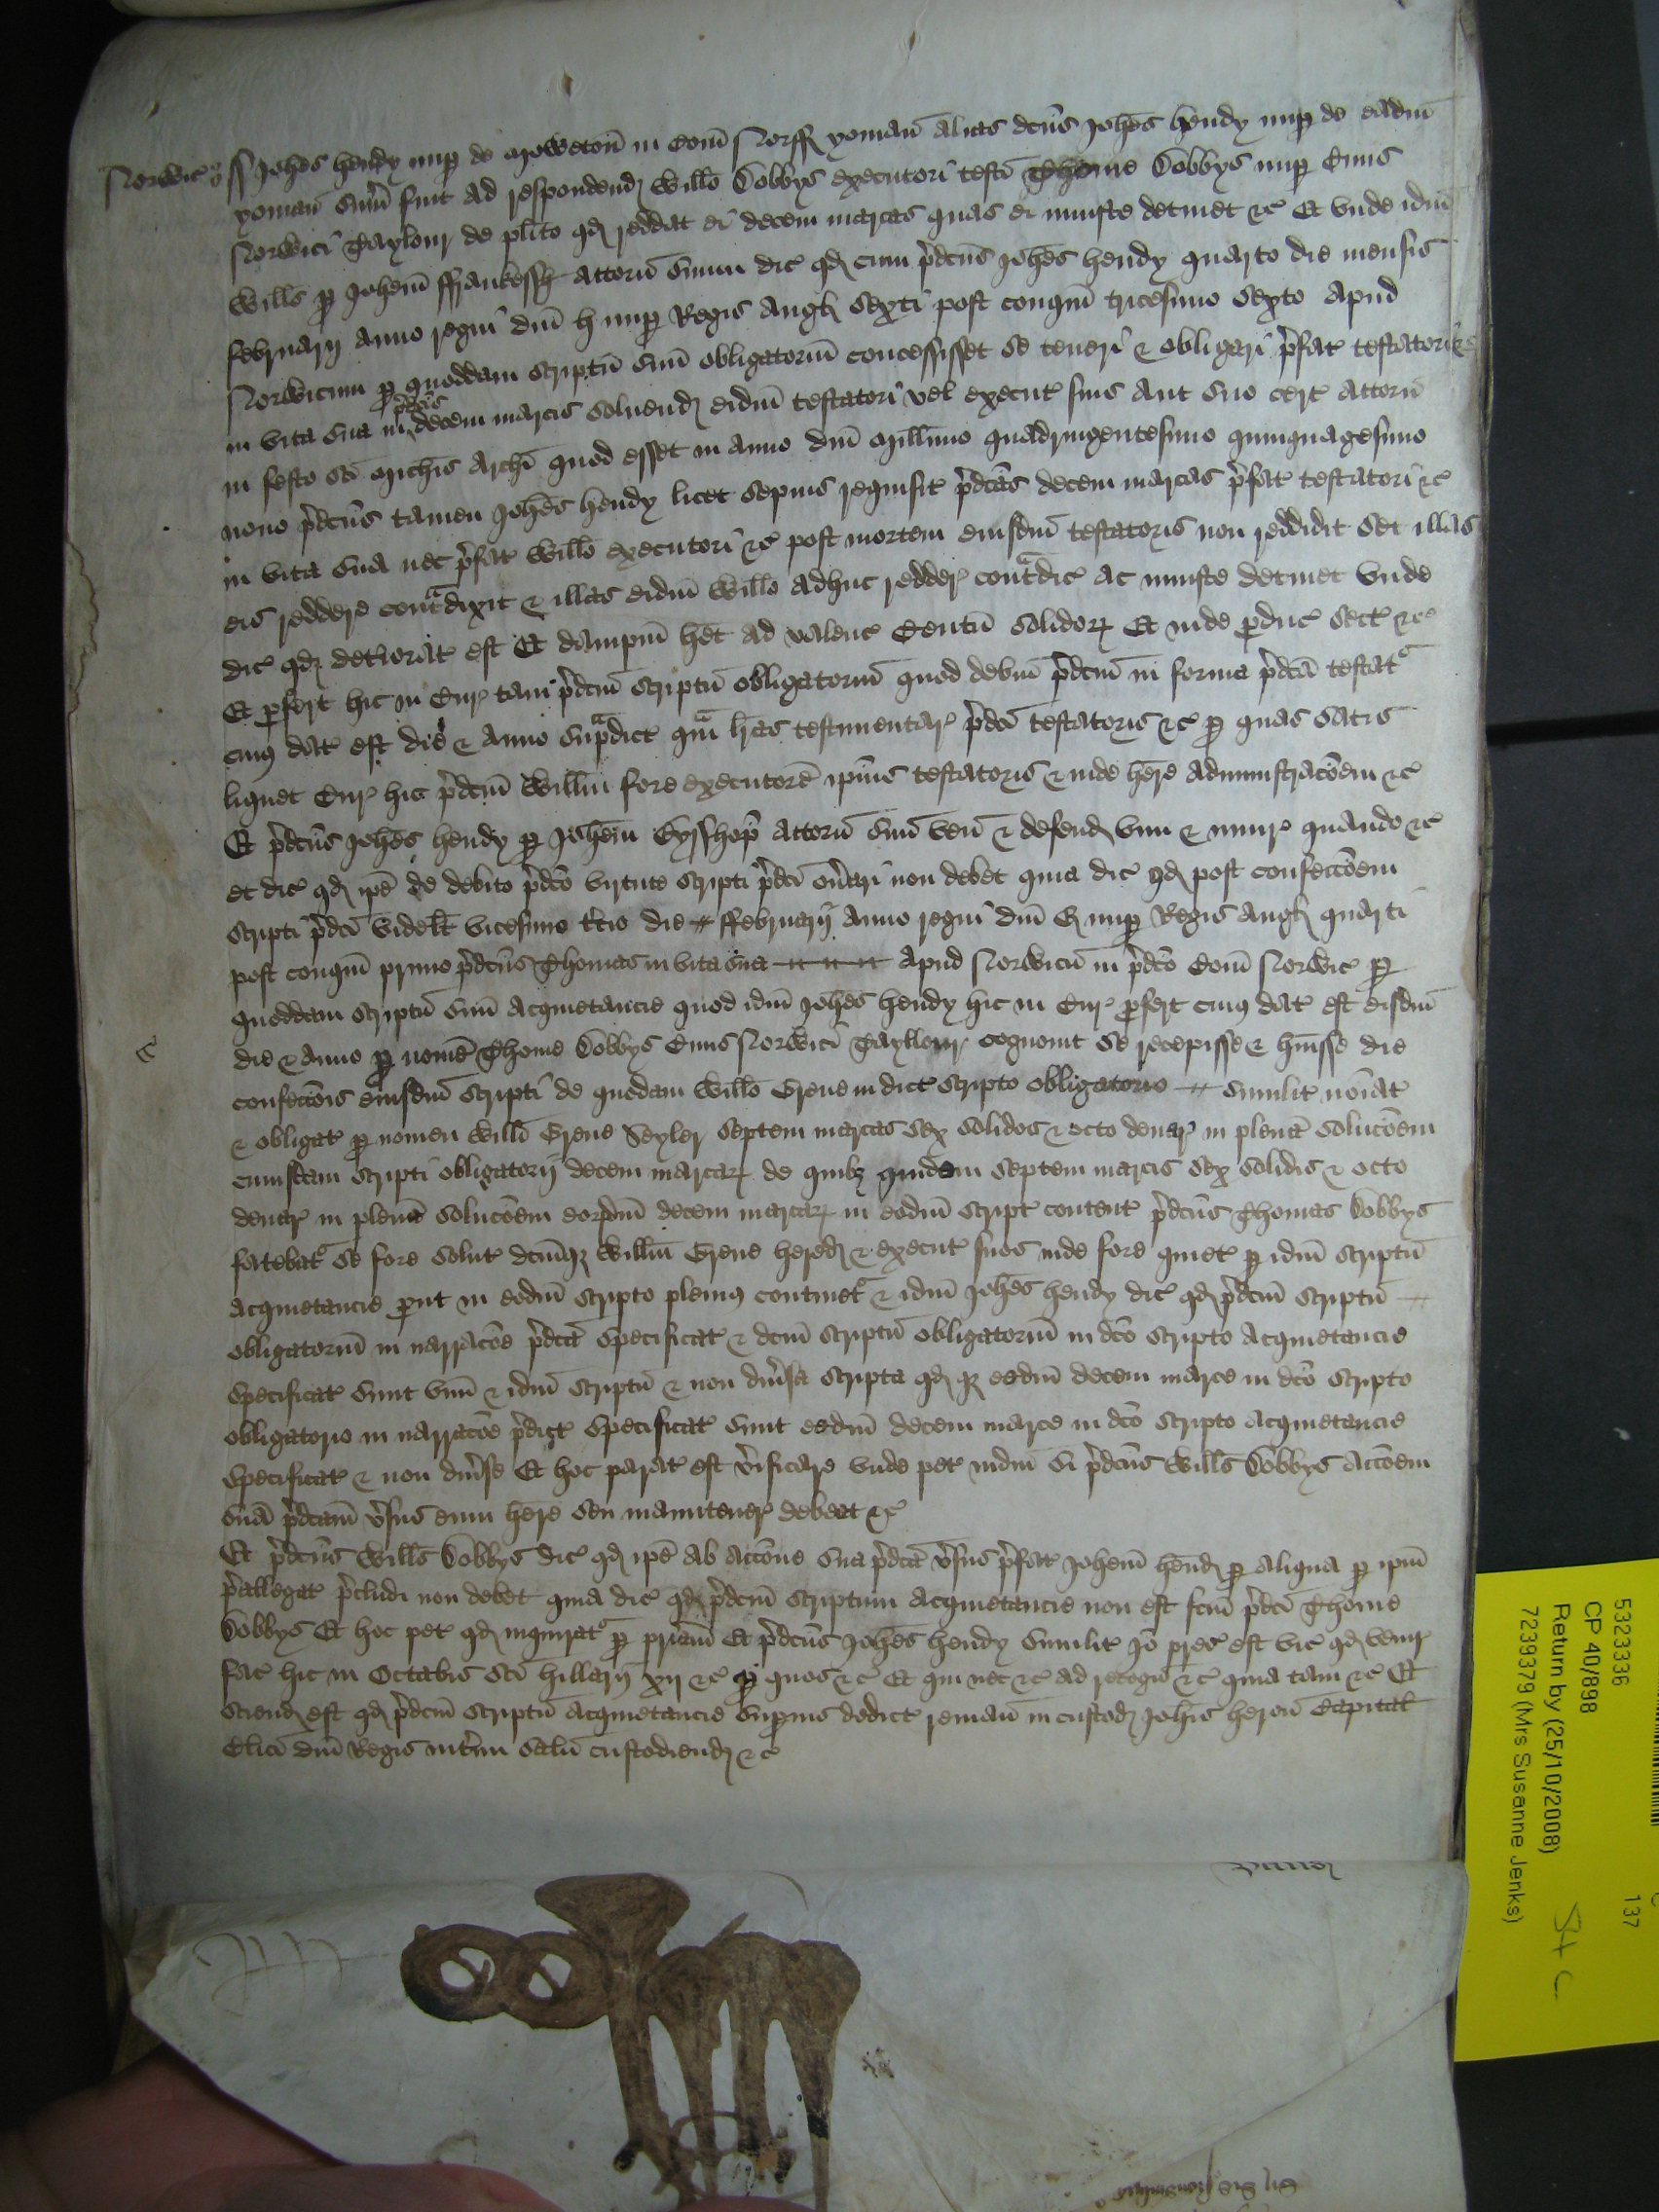 Norwic̃ ss Joħes Hendy nup de Mowetoñ in Com̃ Norff yoman̄ alias dc̃us Joħes Hendy nup de eadm̃
yoman̄ sum̃ fuit ad respondend Willo Dobbys executori testi Thome Dobbys nup Ciuis
Norwici Taylour de plito qd reddat ei decem marcas quas ei iniuste detinet &c Et vnde idm̃
Wills p Joħem attorñ suum dic̃ qd cum p̃dc̃us Joħes Hendy quarto die mensis
Februarij anno regni dñi H nup Regis Angł sexti post conqm̃ tricesimo sexto apud
Norwicum p quoddam scriptū suū obligatoriū concessisset se teneri & obligari p̃fat testatori &c
in vita sua in p̃dc̃is decem marcis soluend eidm̃ testatori vel execut suis aut suo cert attorñ
in festo sc̃i Micħis Archi quod esset in anno dñi Millimo quadringentesimo quinquagesimo
nono p̃dc̃us tamen Joħes Hendy licet sepius requisit p̃dc̃as decem marcas p̃fat testatori &c
in vita sua nec p̃fat Willo executori &c post mortem eiusdm̃ testatoris non reddidit set illas
eis reddere cont̃dixit & illas eidm̃ Willo adhuc redder cont̃dic̃ ac iniuste detinet vnde
dic̃ qd detiorat est Et dampnū het ad valenc̃ Centū solidor Et inde pduc̃ sect &c
Et pfert hic in Cur tam p̃dc̃m scriptū obligatoriū quod debm̃ p̃dc̃m in forma p̃dc̃a testat
cuius dat est die & anno sup̃dict qm̃ lras testamentar p̃dc̃i testatoris &c p quas satis
liquet Cur hic p̃dc̃m Willm̃ fore executorē ip̃ius testatoris & inde here administrac̃oem &c
Et p̃dc̃us Joħes Hendy p Joħem Attorñ suū ven̄ & defend vim & iniur quando &c
et dic̃ qd ip̃e de debito p̃dc̃o virtute scripti p̃dc̃i on̄ari non debet quia dic̃ qd post confecc̃oem
scripti p̃dc̃i videlt vicesimo tc̃io die Februarij anno regni dñi E nup Regis Angł quarti
post conqm̃ primo p̃dc̃us Thomas in vita sua apud Norwicū in p̃dc̃o Com̃ Norwic̃ p
quoddam scriptū suū acquietancie quod idm̃ Joħes Hendy hic in Cur pfert cuius dat est eisdm̃
die & anno p nomē Thome Dobbys Ciuis Norwici Tayllour cognouit se recepisse & ħuisse die
confecc̃ois eiusdm̃ scripti de quodam Willo Grene in dict scripto obligatorio similit no̅iat
& obligat p nomen Willi Grene septem marcas sex solidos & octo denar in plenā soluc̃oem
cuiusdam scripti obligatorij decem marcar de quibȝ quidem septem marcis sex solidis & octo
denar in plenā soluc̃oem eordm̃ decem marcar in eodm̃ script content p̃dc̃us Thomas Dobbys
fatebat se fore solut dc̃umqȝ Willm̃ Grene hered & execut suos inde fore quiet p idm̃ scriptū
acquietancie put in eodm̃ scripto plenius continet & idm̃ Joħes Hendy dic̃ qd p̃dc̃m scriptū
obligatoriū in narrac̃oe p̃dc̃a specificat & dc̃m scriptū obligatoriū in dc̃o scripto acquietancie
specificat sunt vnū & idm̃ scriptū & non diũsa scripta qd qȝ eedm̃ decem marce in dc̃o scripto
obligatorio in narrac̃oe p̃dict specificat sunt eedm̃ decem marce in dc̃o scripto acquietancie
specificat & non diũse Et hoc parat est ṽificare vnde pet iudm̃ si p̃dc̃us Wills Dobbys acc̃oem
suā p̃dc̃am ṽsus eum here seu manutener debeat &c
Et p̃dc̃us Wills Dobbys dic̃ qd ip̃e ab acc̃one sua p̃dc̃a ṽsus p̃fat Joħem Hend p aliqua p ip̃m
p̃allegat p̃cludi non debet quia dic̃ qd p̃dc̃m scriptum acquietancie non est fc̃m p̃dc̃i Thome
Dobbys Et hoc pet qd inquirat p pr̃iam Et p̃dc̃us Joħes Hendy similit Io̅ prec̃ est vic̃ qd venir
fac̃ hic in Octabis sc̃i Hillarij xij &c p quos &c Et qui nec &c ad recogñ &c quia tam &c Et
sciend est qd p̃dc̃m scriptū acquietancie supius dedict remañ in custod Joħis Heroñ Capital
Clici dñi Regis int̃im salū custodiend &c
5323336
137
CP 40/898
Return by (25/10/2008)
7239379 (Mrs Susanne Jenks)